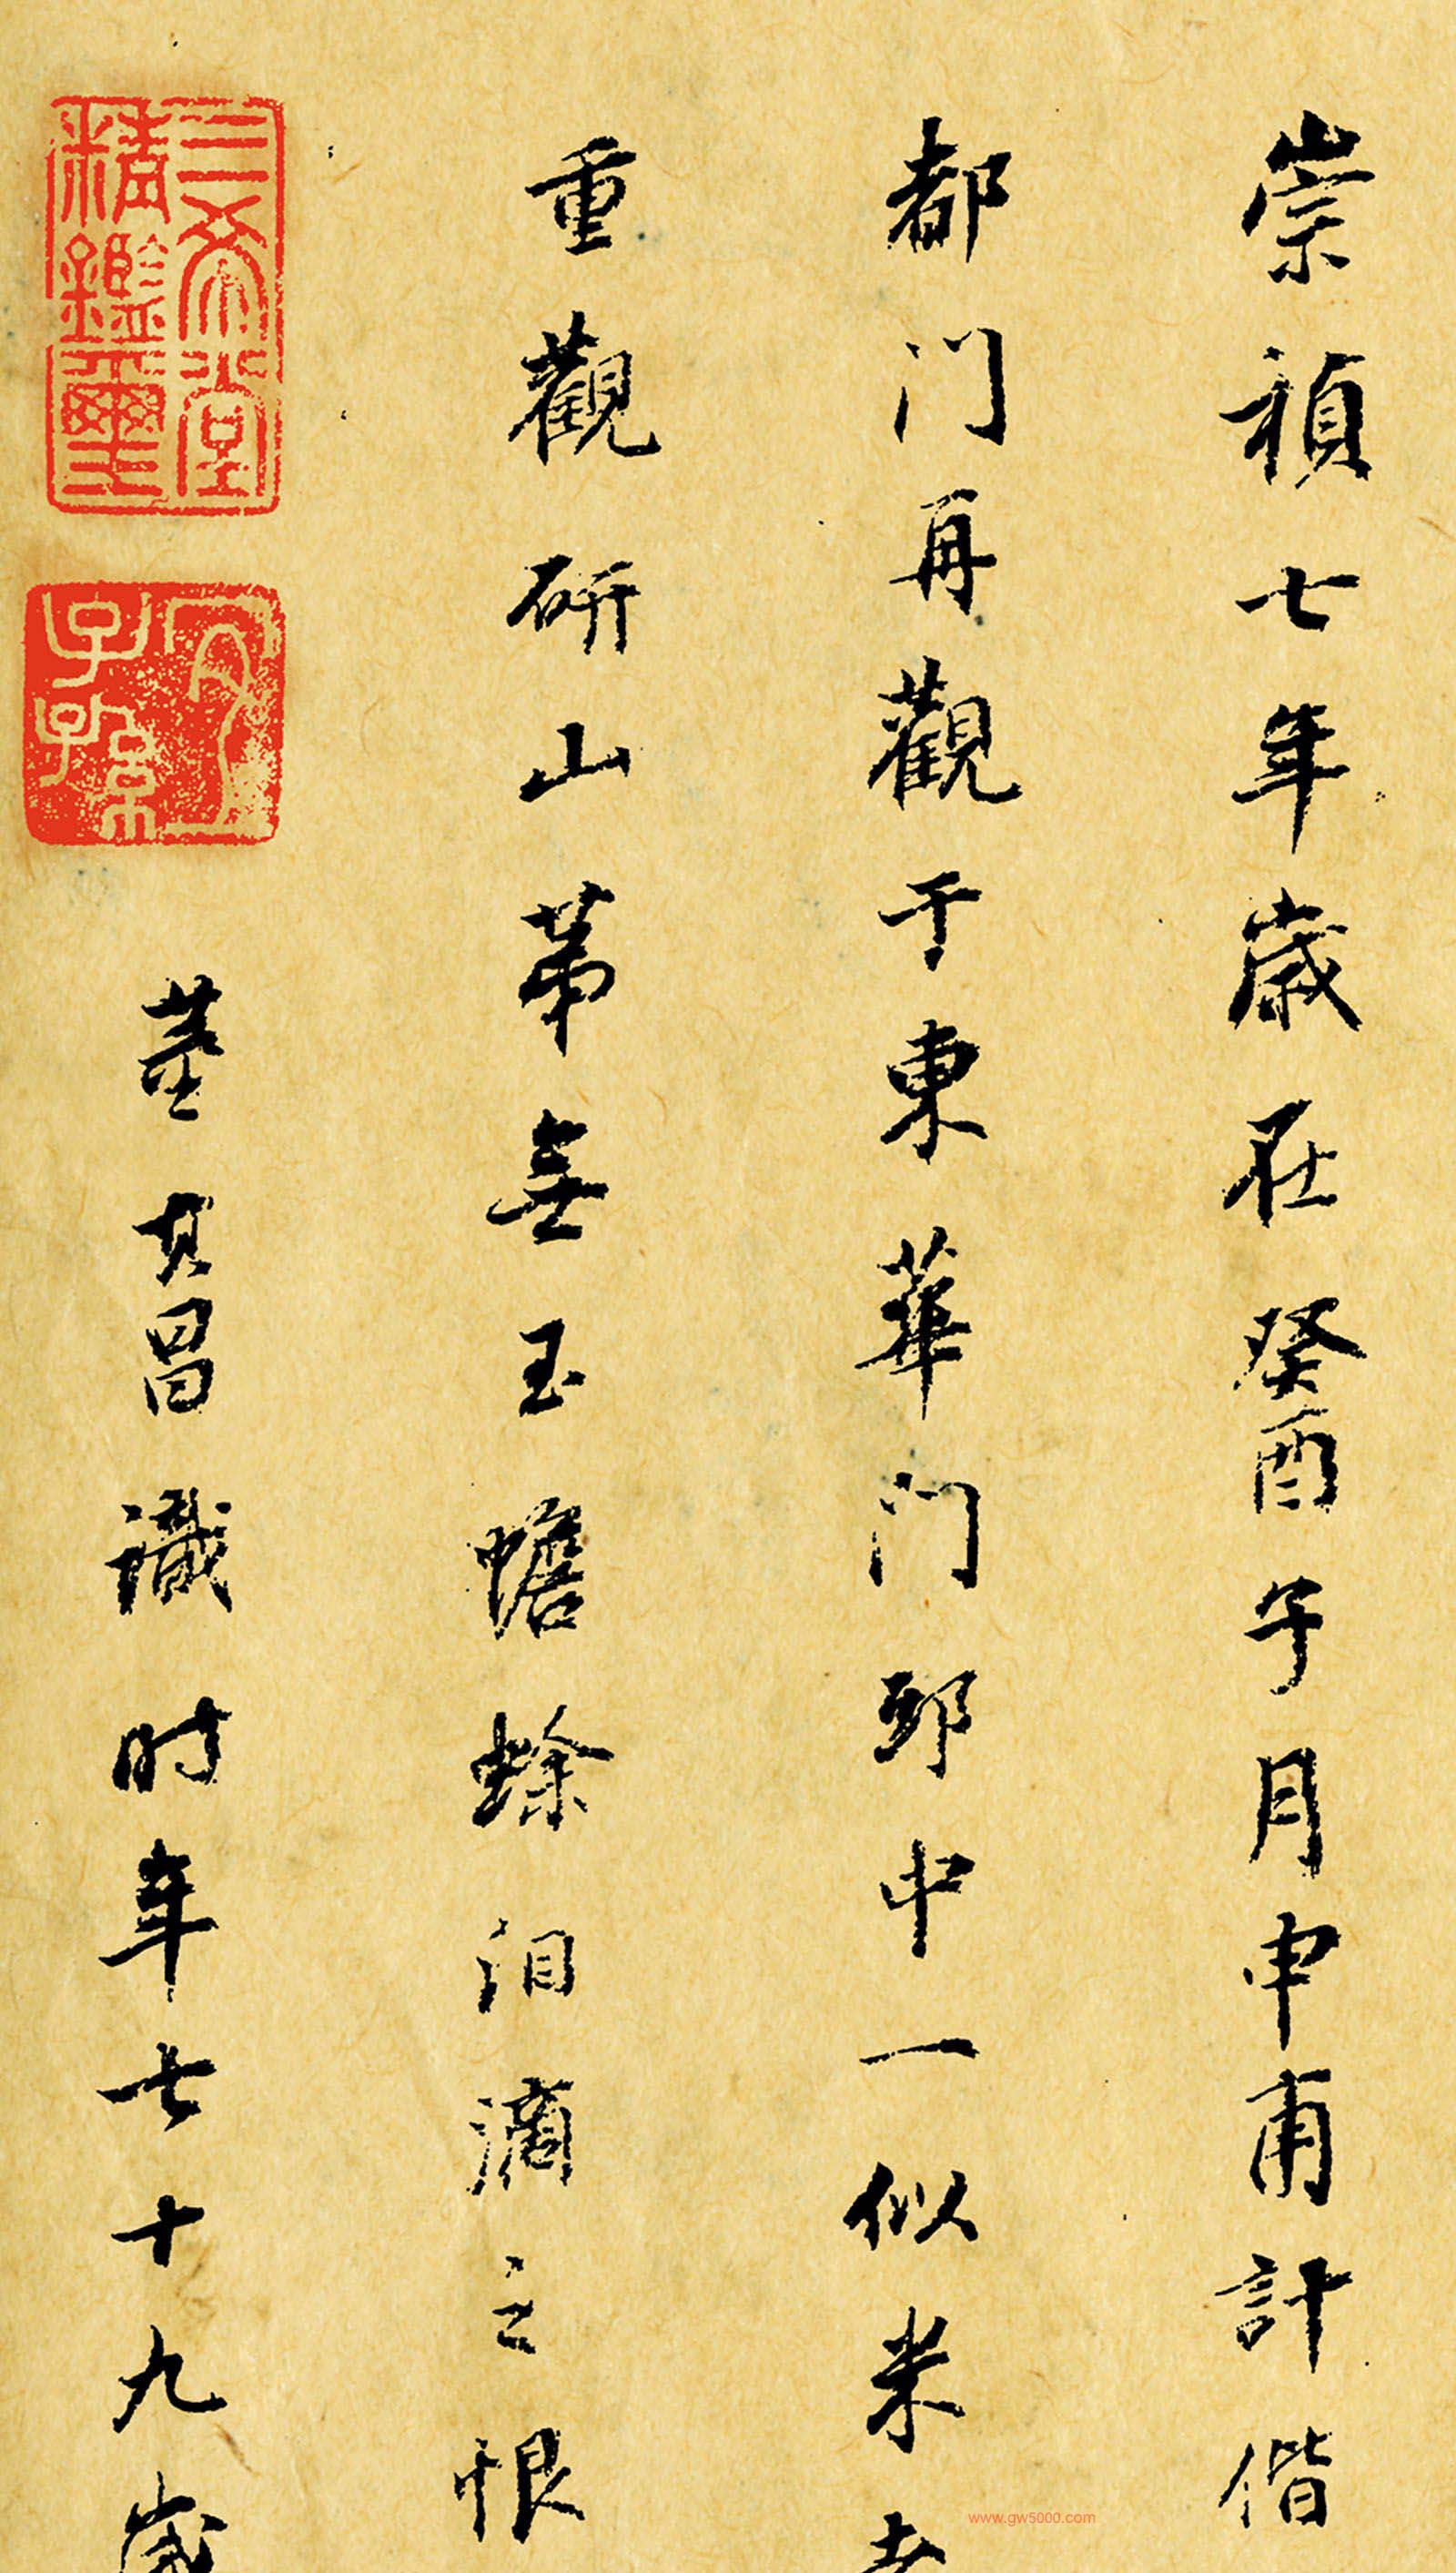 崇禎七年歲在癸酉子月申甫計偕
都門再觀于東華門邸中一似米老
重觀研山苐無玉蟾蜍泪滴之恨
三希堂精鑑璽
宜子孫
董其昌識时年七十九歲
www.gw5000.com